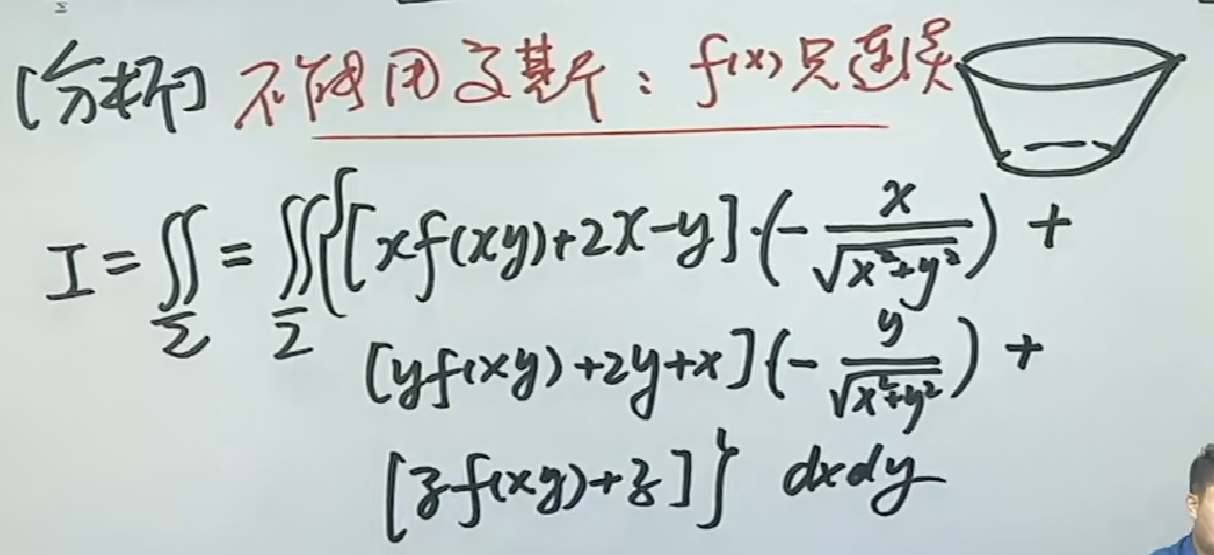 [分析] 不能用高斯：f(x)只连续
I = ∬_Σ = ∬_Σ {[xf(xy)+2x-y]·(-x/√(x²+y²)) +
[yf(xy)+2y+x](-y/√(x²+y²)) +
[zf(xy)+z]} dxdy